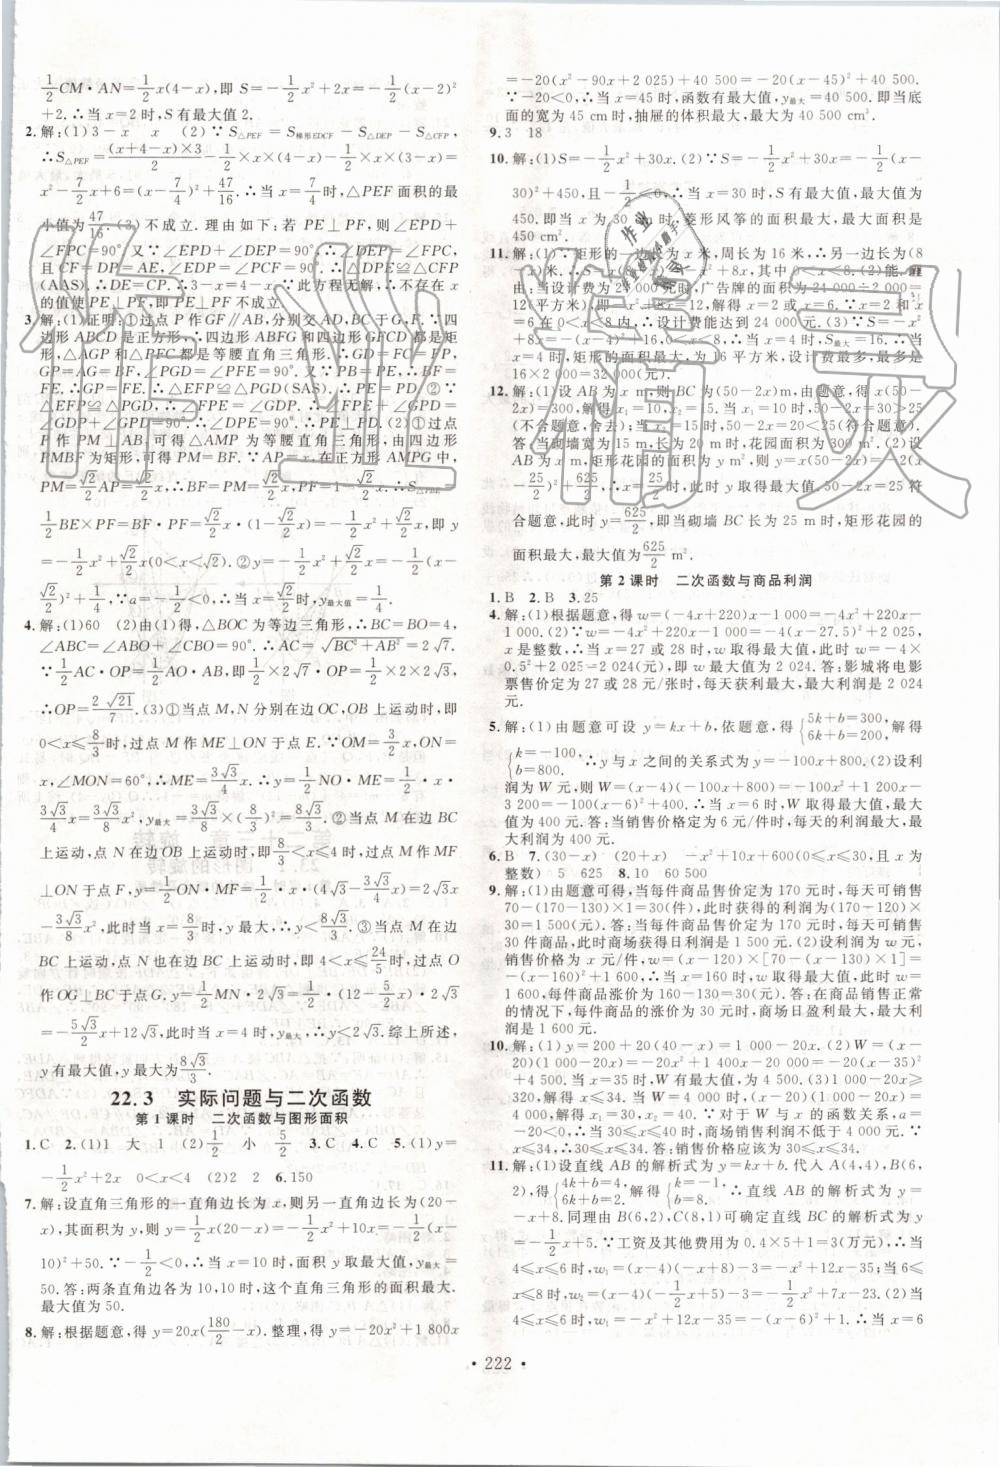 1/2 CM·AN=1/2 x(4-x),即 S=-1/2 x²+2x=-1/2(x-2)²
+2.∴当 x=2时,S有最大值2.
2.解:(1)3-x x (2)∵S△PEF=S梯形EDCF-S△DEP-S△CFP,
∴S△PEF=(x+4-x)×3/2-1/2×x×(4-x)-1/2×x×(3-x)=
x²-7/2 x+6=(x-7/4)²+47/16.∴当 x=7/4时,△PEF面积的最
小值为47/16.(3)不成立.理由如下:若 PE⊥PF,则∠EPD+
∠FPC=90°.又∵∠EPD+∠DEP=90°,∴∠DEP=∠FPC.
且 CF=DP=AE,∠EDP=∠PCF=90°,∴△DEP≌△CPF
(AAS).∴DE=CP.∴3-x=4-x.此方程无解,∴不存在 x
的值使 PE⊥PF,即 PE⊥PF 不成立.
3.解:(1)证明:①过点 P 作 GF∥AB,分别交 AD,BC 于 G,F.∵四
边形 ABCD 是正方形,∴四边形 ABFG 和四边形 GFCD 都是矩
形,△AGP 和△PFC 都是等腰直角三角形.∴GD=FC=FP,
GP=AG=BF,∠PGD=∠PFE=90°.又∵PB=PE,∴BF=
FE.∴GP=FE.∴△EFP≌△PGD(SAS).∴PE=PD.②∵
△EFP≌△PGD,∴∠GDP=∠FPE.∴∠FPE+∠GPD=
∠GDP+∠GPD=90°.∴∠EPD=90°.∴PE⊥PD.(2)①过点
P 作 PM⊥AB,可得△AMP 为等腰直角三角形,由四边形
PMBF 为矩形,可得 PM=BF.在正方形 AMPG 中,
PM=√2/2 AP=√2/2 x.∴BF=PM=√2/2 x,PF=1-√2/2 x.∴S△PBE=
1/2 BE×PF=BF·PF=√2/2 x·(1-√2/2 x)=-1/2 x²+√2/2 x,即 y
=-1/2 x²+√2/2 x(0<x<√2).②y=-1/2 x²+√2/2 x=-1/2(x-
√2/2)²+1/4,∵-1/2<0,∴当 x=√2/2时,y最大值=1/4.
4.解:(1)60 (2)由(1)知,△BOC 为等边三角形,∴BC=BO=4,
∠ABC=∠ABO+∠CBO=90°.∴AC=√(BC²+AB²)=2√7.
∵1/2 AC·OP=1/2 AO·AB,即1/2×2√7·OP=1/2×2×2√3,
∴OP=2√21/7.(3)①当点 M,N 分别在边 OC,OB 上运动时,即
0<x≤8/3时,过点 M 作 ME⊥ON 于点 E.∵OM=3/2 x,ON=
x,∠MON=60°,∴ME=3√3/4 x.∴y=1/2 ON·ME=1/2·x·
3√3/4 x=3√3/8 x²,y最大=3√3/8×(8/3)²=8√3/3.②当点 M 在边 BC
上运动,点 N 在边 OB 上运动,即8/3<x≤4时,过点 M 作 MF
⊥ON 于点 F,y=1/2 ON·MF=1/2·x·(8-3/2 x)·√3/2=-
3√3/8 x²+2√3 x.∴y<8√3/3.③当点 M 在边 BC 上运动,点 N 在边
BC 上运动,点 N 在边 BC 上运动,即4<x≤24/5时,过点 O
作 OG⊥BC 于点 G,y=1/2 MN·2√3=1/2·(12-5/2 x)·2√3
=-5√3/2 x+12√3,此时当 x=4时,y最大=2√3,∴y<2√3.综上所述,
y 有最大值,y最大值为8√3/3.
22.3 实际问题与二次函数
第1课时 二次函数与图形面积
1.C 2.(1)1 大 1 (2)1/2 小 5/2 3.C 4.C 5.(1)y=
-1/2 x²+2x 0<x<4 (2)2 2 6.150
7.解:设直角三角形的一直角边长为 x,则另一直角边长为(20-
x),其面积为 y,则 y=1/2 x(20-x)=-1/2 x²+10x=-1/2(x-
10)²+50.∵-1/2<0,∴当 x=10时,面积 y 取最大值,y最大=
50.答:两条直角边长为10,10时,这个直角三角形的面积最大,
最大值为50.
8.解:根据题意,得 y=20x(180/2-x).整理,得 y=-20x²+1 800x
=-20(x²-90x+2 025)+40 500=-20(x-45)²+40 500.
∵-20<0,∴当 x=45时,函数有最大值,y最大=40 500.即当底
面的宽为45 cm时,抽屉的体积最大,最大为40 500 cm³.
9.3 18
10.解:(1)S=-1/2 x²+30x.(2)∵S=-1/2 x²+30x=-1/2(x-
30)²+450,且-1/2<0,∴当 x=30时,S有最大值,最大值为
450.即当 x 为30 cm时,菱形风筝的面积最大,最大面积是
450 cm².
11.解:(1)∵矩形的一边长为 x 米,周长为16米,∴另一边长为(8-
x)米.∴S=x(8-x)=-x²+8x,其中0<x<8.(2)能.理
由:当设计费为24 000元时,广告牌的面积为24 000÷2 000=
12(平方米),即-x²+8x=12,解得 x=2或 x=6.∵x=2和 x
=6在0<x<8内,∴设计费能达到24 000元.(3)∵S=-x²
+8x=-(x-4)²+16,0<x<8,∴当 x=4时,S最大=16.∴当
x=4时,矩形的面积最大,为16平方米,设计费最多,最多是
16×2 000=32 000(元).
12.解:(1)设 AB 为 x m,则 BC 为(50-2x)m,由题意,得 x(50-
2x)=300,解得 x₁=10,x₂=15.当 x₁=10时,50-2x=30>25
(不合题意,舍去);当 x₂=15时,50-2x=20<25(符合题意).
答:当砌墙宽为15 m,长为20 m时,花园面积为300 m².(2)设
AB 为 x m,矩形花园的面积为 y m²,则 y=x(50-2x)=-2(x-
25/2)²+625/2.∴x=25/2时,此时 y 取得最大值.50-2x=25符
合题意,此时 y=625/2,即当砌墙 BC 长为25 m时,矩形花园的
面积最大,最大值为625/2 m².
第2课时 二次函数与商品利润
1.B 2.B 3.25
4.解:(1)根据题意,得 w=(-4x+220)x-1 000=-4x²+220x-
1 000.(2)∵w=-4x²+220x-1 000=-4(x-27.5)²+2 025,
x 是整数,∴当 x=27或28时,w 取得最大值,最大值为-4×
0.5²+2 025=2 024(元),即 w 最大值为2 024.答:影城将电影
票售价定为27或28元/张时,每天获利最大,最大利润是2 024
元.
5.解:(1)由题意可设 y=kx+b,依题意,得{5k+b=300,6k+b=200,解得
{k=-100,b=800.∴y 与 x 之间的关系式为 y=-100x+800.(2)设利
润为 W 元,则 W=(x-4)(-100x+800)=-100x²+1 200x-
3 200=-100(x-6)²+400,∴当 x=6时,W 取得最大值,最大
值为400元.答:当销售价格定为6元/件时,每天的利润最大,最
大利润为400元.
6.B 7.(30-x) (20+x) -x²+10x+600(0≤x≤30,且 x 为
整数) 5 625 8.10 60 500
9.解:(1)由题意可得,当每件商品售价定为170元时,每天可销售
70-(170-130)×1=30(件),此时获得的利润为(170-120)×
30=1 500(元).答:当每件商品售价定为170元时,每天可销售
30件商品,此时商场获得日利润是1 500元.(2)设利润为 w 元,
销售价格为 x 元/件,则 w=(x-120)×[70-(x-130)×1]=
-(x-160)²+1 600,∴当 x=160时,w 取得最大值,最大值为
1 600,每件商品涨价为160-130=30(元).答:在商品销售正常
的情况下,每件商品的涨价为30元时,商场日盈利最大,最大
利润是1 600元.
10.解:(1)y=200+20(40-x)=1 000-20x.(2)W=(x-
10)(1 000-20x)=-20x²+1 200x-10 000=-20(x-30)²
+8 000,∴当 x=30时,W 有最大值为8 000.(3)W=(x-
16)(1 000-20x)=-20x²+1 320x-16 000=-20(x-33)²
+5 780.当 W=4 000时,-20(x-33)²+5 780=
4 000.∴(x-33)²=89.∵对于 W 与 x 的函数关系,a=
-20<0,∴当 30≤x≤36时,销售利润不低于4 000元.∵
x≤36,∴30≤x≤36.答:销售价格应该为30≤x≤36.
11.解:(1)设直线 AB 的解析式为 y=kx+b.代入 A(4,4),B(6,
2),得{4k+b=4,6k+b=2.解得{k=-1,b=8.∴直线 AB 的解析式为 y=
-x+8.同理由 B(6,2),C(8,1)可确定直线 BC 的解析式为 y
=-1/2 x+5.∵工资及其他费用为0.4×5+1=3(万元),∴当
4≤x≤6时,w₁=(x-4)(-x+8)-3=-x²+12x-35.当
6≤x≤8时,w₂=(x-4)(-1/2 x+5)-3=-1/2 x²+7x-23.(2)当
4≤x≤6时,w₁=-x²+12x-35=-(x-6)²+1,∴当 x=6
· 222 ·